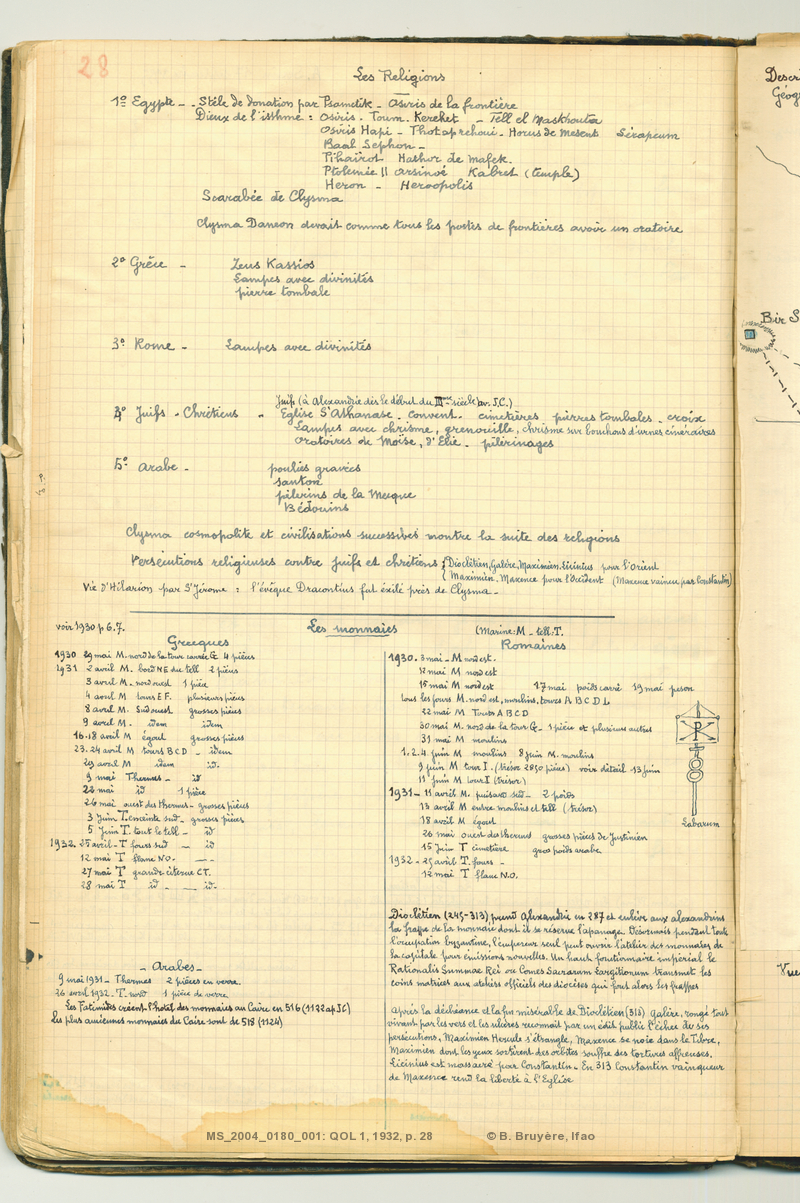 28
Les Religions
1º Egypte - . Stèle de donation par Psametik - Osiris de la frontière
Dieux de l'isthme : Osiris. Toum. Kerehet - Tell el Maskhouta
Osiris Hapi - Thot aprehoui - Horus de Mesent Sérapeum
Baal Sephon -
Pihaïrot Hathor de Mafek.
Ptolémée II Arsinoé Kabret (temple)
Heron - Heroopolis
Scarabée de Clysma
Clysma Daneon devait comme tous les postes de frontières avoir un oratoire
2º Grèce - Zeus Kassios
Lampes avec divinités
pierre tombale
3º Rome - Lampes avec divinités
Juifs (à Alexandrie dès le début du IIIme siècle av. J.C.)
4º Juifs - Chrétiens - Eglise St Athanase. Convent. cimetières pierres tombales. croix
Lampes avec chrisme, grenouille, chrisme sur bouchons d'urnes cinéraires
Oratoires de Moïse, d'Elie - pélerinages
5º Arabe - poulies gravées
santon
pélerins de la Mecque
Bédouins
Clysma cosmopolite et civilisations successives montre la suite des religions
Persécutions religieuses contre juifs et chrétiens { Dioclétien, Galère, Maximien, Licinius pour l'Orient
{ Maximien. Maxence pour l'Occident (Maxence vaincu par Constantin)
Vie d'Hilarion par St Jérome : l'évêque Dracontius fut exilé près de Clysma -
voir 1930 p 6.7. Les monnaies (Marine : M - tell : T.
Grecques
1930 29 mai M. nord de la tour carrée G 4 pièces
1931 2 avril M. bord NE du tell 2 pièces
3 avril M. nord ouest 1 pièce
4 avril M tours E F. plusieurs pièces
8 avril M. Sud ouest grosses pièces
9 avril M. idem idem
16.18 avril M égout grosses pièces
23.24 avril M tours B C D - idem
29 avril M idem id.
9 mai Thermes - id
22 mai id 1 pièce
26 mai ouest des thermes - grosses pièces
3 Juin T. enceinte sud - grosses pièces
5 Juin T. tout le tell - id
1932. 25 avril - T fours sud - id
12 mai T flanc NO. - —
27 mai T grande citerne CT.
28 mai T id - — id-
Romaines
1930. 3 mai - M nord est.
12 mai M nord est
15 mai M nord est 17 mai poids carré 19 mai peson
tous les jours M. nord est, moulins, tours A B C D L
22 mai M Tours A B C D
30 mai M. nord de la tour G - 1 pièce et plusieurs autres
31 mai M moulins
1.2.4 juin M moulins 8 Juin M. moulins
9 juin M tour I. (trésor 2850 pièces) voir détail 13 juin
11 juin M tour I (trésor)
1931 - 11 avril M. puisard sud - 2 poids
13 avril M entre moulins et tell (trésor)
18 avril M égout
26 mai ouest des thermes grosses pièces de Justinien
15 Juin T cimetière gros poids arabe.
1932 - 25 avril T. fours -
12 mai T flanc N.O.
Labarum
Dioclétien (245-313) prend Alexandrie en 287 et enlève aux alexandrins
la frappe de la monnaie dont il se réserve l'apanage. Désormais pendant toute
l'occupation byzantine, l'empereur seul peut ouvrir l'atelier des monnaies de
la capitale pour émissions nouvelles. Un haut fonctionnaire impérial le
Rationalis Summae Rei ou Comes Sacrarum Largitionum transmet les
coins matrices aux ateliers officiels des diocèses qui font alors les frappes
Après la déchéance et la fin misérable de Dioclétien (313) Galère, rongé tout
vivant par les vers et les ulcères reconnait par un édit public l'échec de ses
persécutions, Maximien Hercule s'étrangle, Maxence se noie dans le Tibre,
Maximien dont les yeux sortirent des orbites souffre des tortures affreuses,
Licinius est massacré par Constantin - En 313 Constantin vainqueur
de Maxence rend la liberté à l'Eglise
- Arabes -
9 mai 1931 - Thermes 2 pièces en verre.
26 avril 1932. T. nord 1 pièce de verre
Les Fatimites créent l'hôtel des monnaies au Caire en 516 (1122 ap JC)
Les plus anciennes monnaies du Caire sont de 518 (1124)
Descri
Géog
Bir S
Vue
MS_2004_0180_001: QOL 1, 1932, p. 28 © B. Bruyère, Ifao